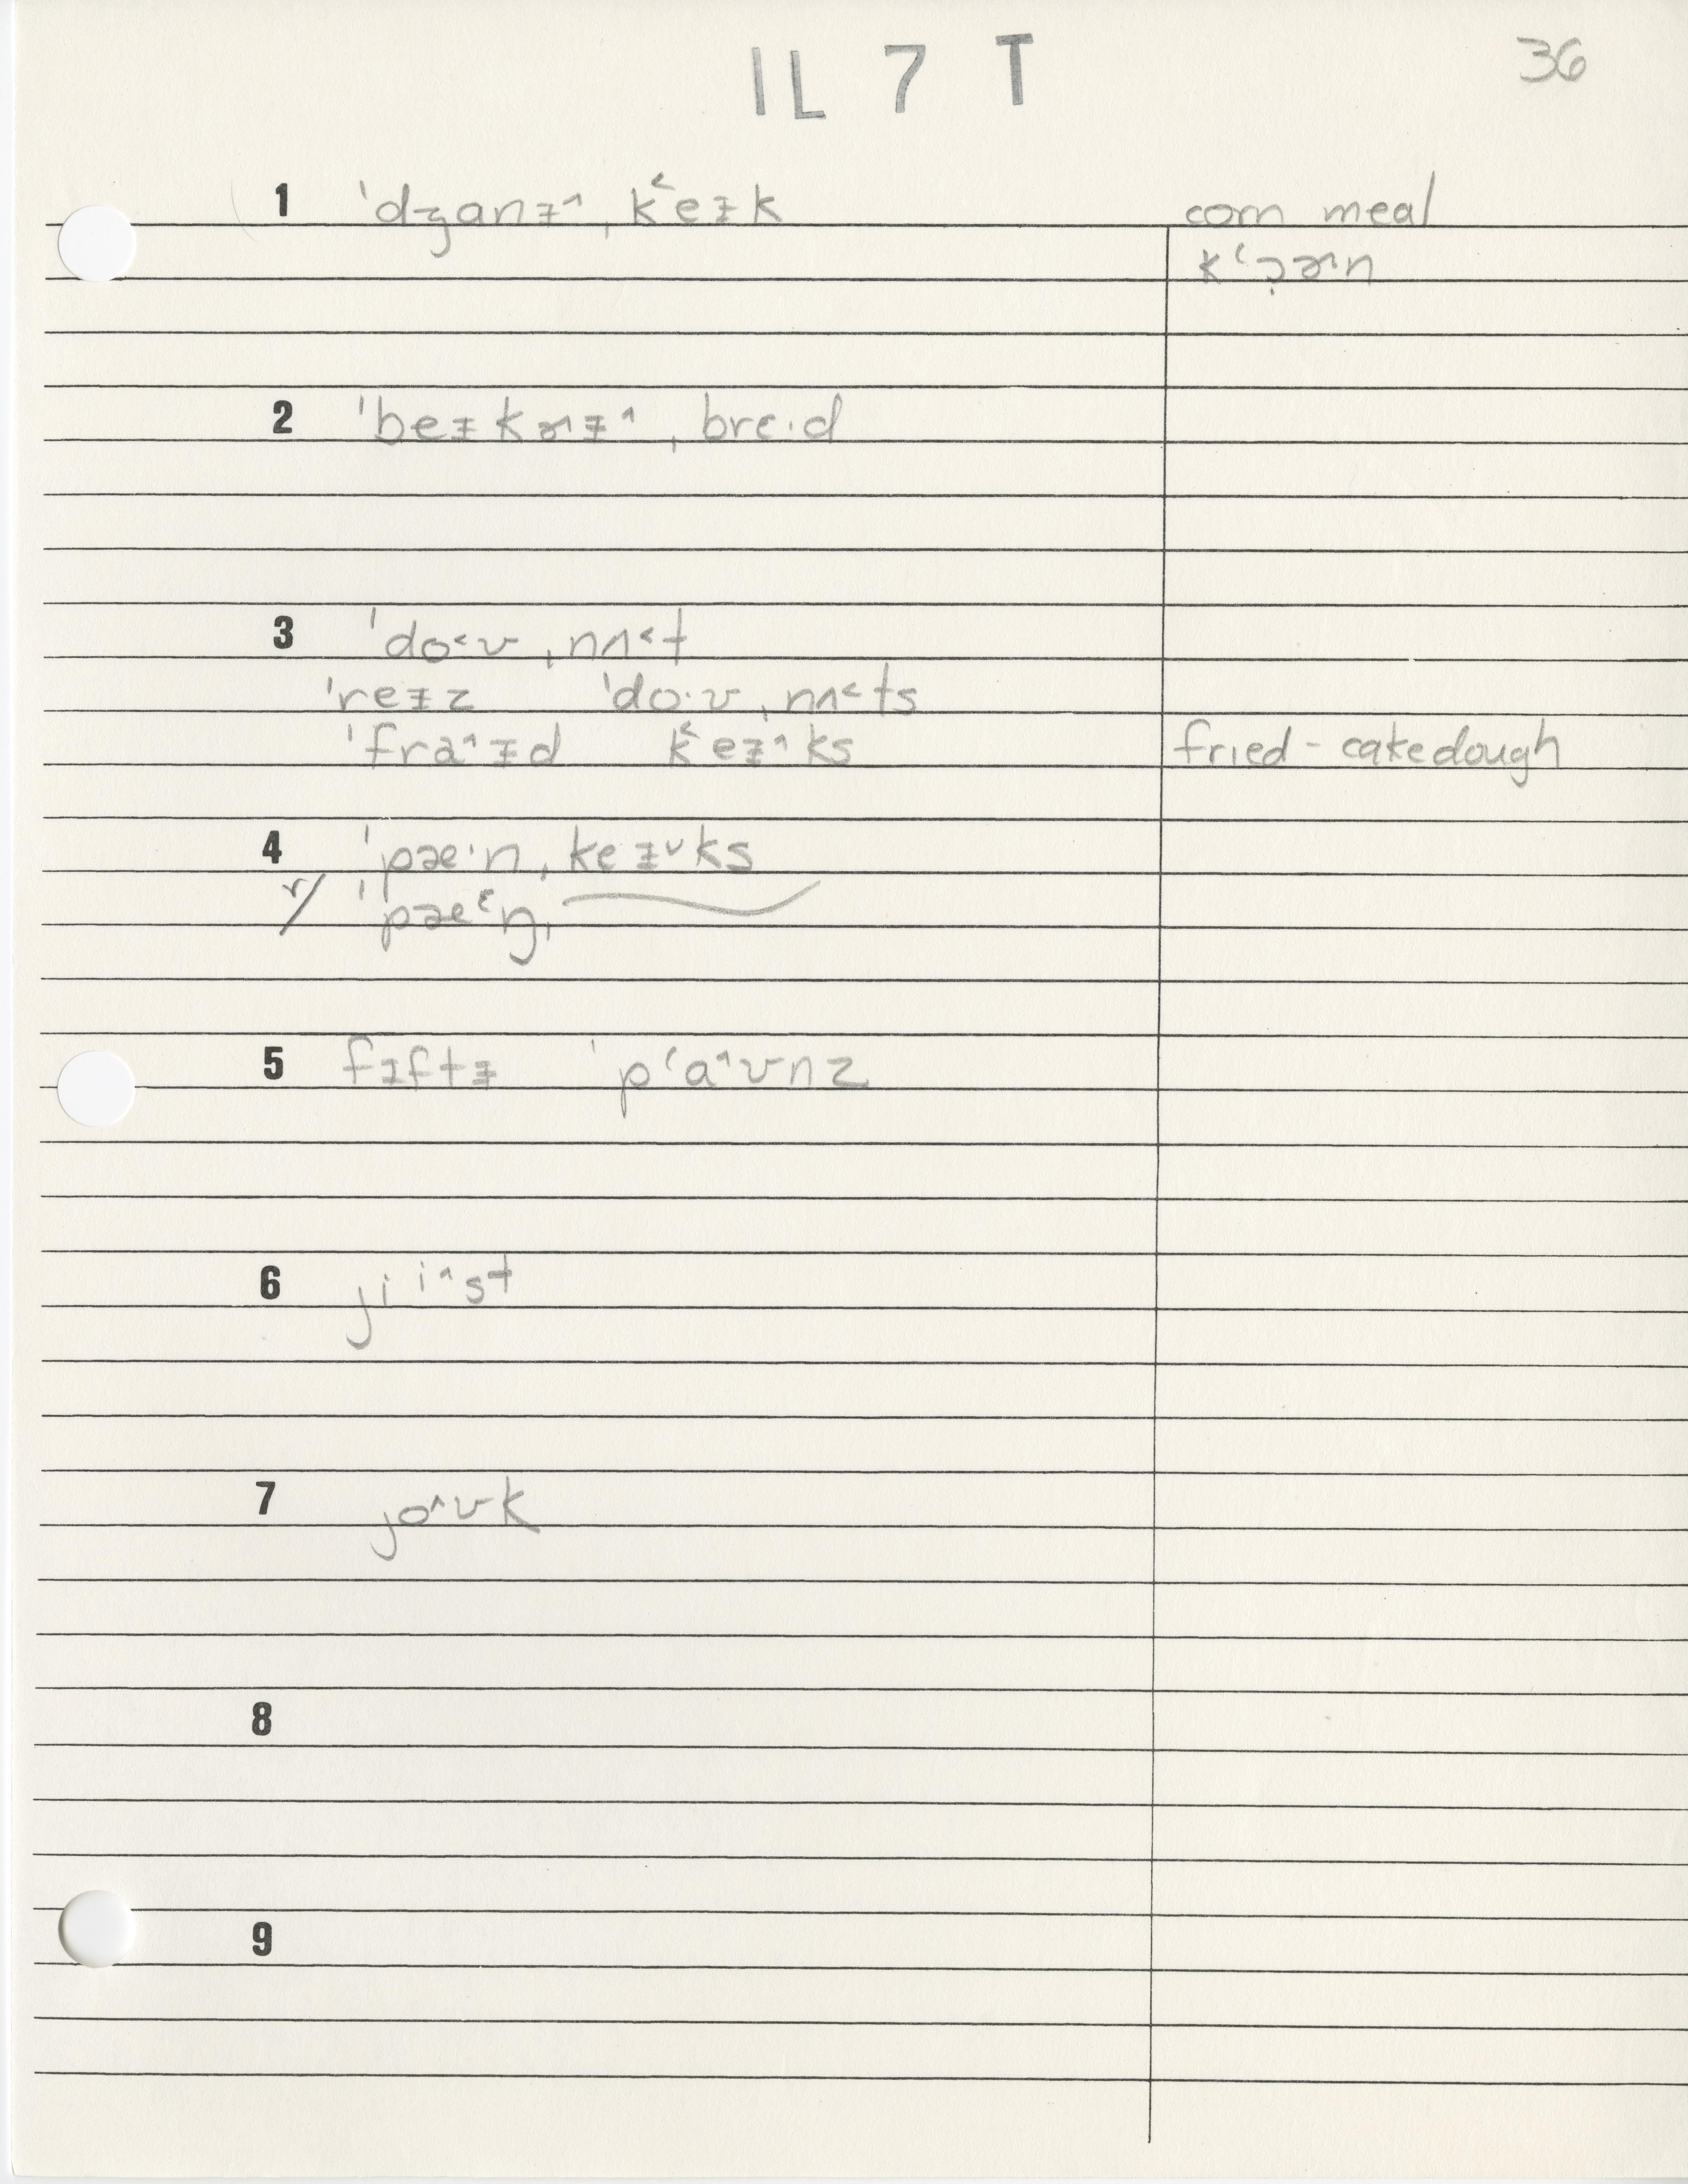 IL 7 T
36
1 ˈdʒanɪ̵˄ ˌk˂eɪ̵k corn meal
k‘ɔ̣ɚn
2 ˈbeɪ̵kɚɪ̵˄ ˌbrɛ·d
3 ˈdo˂ʊ ˌnʌ˂t
ˈreɪ̵z ˈdo·ʊ ˌnʌ˂ts
ˈfra˄ɪ̵d k˂eɪ̵˄ks fried-cakedough
4 ˈpæ·n ˌkeɪ̵˅ks
r/ ˈpæᵋŋ ˌ
5 fɪftɪ̵ ˈp‘a˄ʊnz
6 jiⁱ˄st
7 jo˄ʊk
8
9